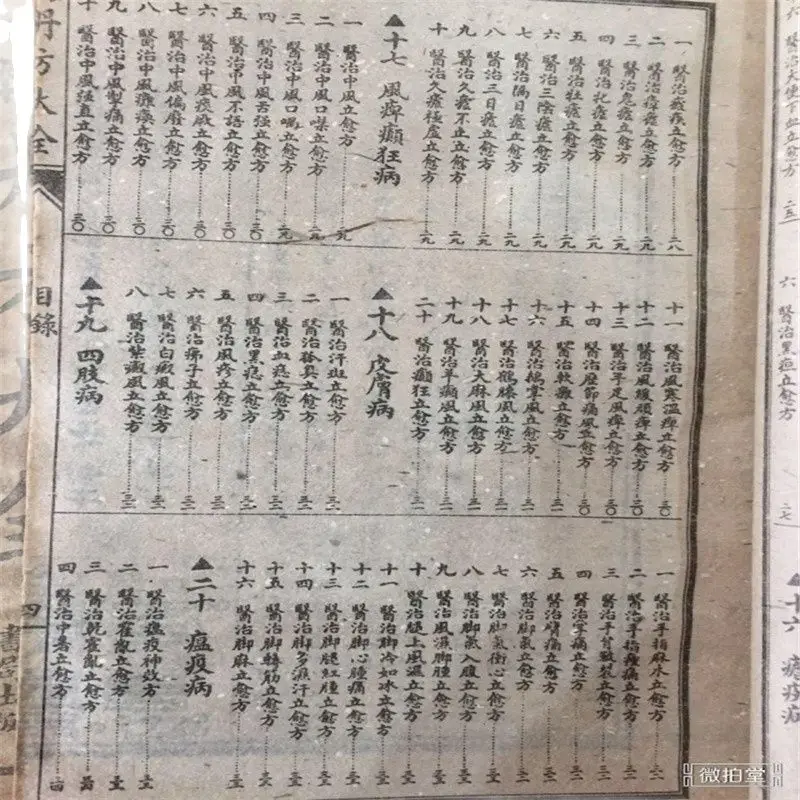 一 醫治瘧疾立愈方 二八
二 醫治瘴瘧立愈方 二九
三 醫治鬼瘧立愈方 二九
四 醫治牝瘧立愈方 二九
五 醫治牡瘧立愈方 二九
六 醫治三陰瘧立愈方 二九
七 醫治隔日瘧立愈方 二九
八 醫治三日瘧立愈方 二九
九 醫治久瘧不止立愈方 二九
十 醫治久瘧極虛立愈方 二九
▲十七 風痺癲狂病
一 醫治中風立愈方 二九
二 醫治中風口噤立愈方 二九
三 醫治中風口喎立愈方 二九
四 醫治中風舌强立愈方 三〇
五 醫治中風不語立愈方 三〇
六 醫治中風痰厥立愈方 三〇
七 醫治中風偏廢立愈方 三〇
八 醫治中風癱瘓立愈方 三〇
九 醫治中風掣痛立愈方 三〇
十 醫治中風强直立愈方 三〇
十一 醫治風寒溫痺立愈方 三〇
十二 醫治風緩頑痺立愈方 三〇
十三 醫治手足風痺立愈方 三〇
十四 醫治歷節痛風立愈方 三〇
十五 醫治軟癱立愈方 三一
十六 醫治鵝掌風立愈方 三一
十七 醫治鶴膝風立愈方 三一
十八 醫治大麻風立愈方 三一
十九 醫治羊癇風立愈方 三一
二十 醫治癲狂立愈方 三一
▲十八 皮膚病
一 醫治汗斑立愈方 三二
二 醫治狐臭立愈方 三二
三 醫治血痣立愈方 三二
四 醫治黑痣立愈方 三二
五 醫治風疹立愈方 三二
六 醫治痱子立愈方 三二
七 醫治白癜風立愈方 三二
八 醫治紫癜風立愈方 三二
▲十九 四肢病
一 醫治手指麻木立愈方
二 醫治手指腫痛立愈方
三 醫治手背皴裂立愈方
四 醫治掌痛立愈方
五 醫治臂痛立愈方
六 醫治脚氣立愈方
七 醫治脚氣衝心立愈方
八 醫治脚氣入腹立愈方
九 醫治風濕脚腫立愈方
十 醫治腿上風濕立愈方
十一 醫治脚冷如冰立愈方
十二 醫治脚心腫痛立愈方
十三 醫治脚腿紅腫立愈方
十四 醫治脚多濕汗立愈方
十五 醫治脚轉筋立愈方
十六 醫治脚麻立愈方
▲二十 瘟疫病
一 醫治瘟疫神效方
二 醫治霍亂立愈方
三 醫治乾霍亂立愈方
四 醫治中暑立愈方
丹方大全
目錄
四
六 醫治大便下血立愈方 二五
六 醫治黑疸立愈方 二七
▲十六 瘧疾病
微拍堂